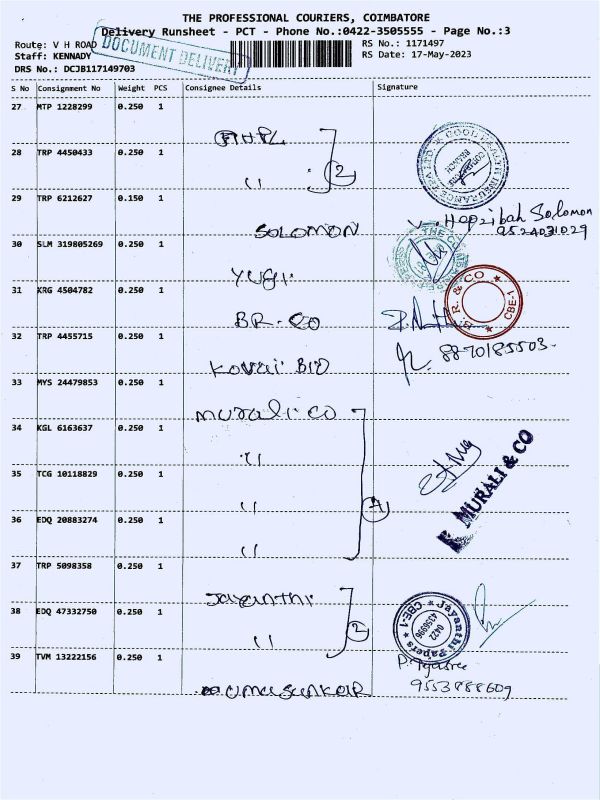 THE PROFESSIONAL COURIERS, COIMBATORE
Delivery Runsheet - PCT - Phone No.:0422-3505555 - Page No.:3
Route: V H ROAD
RS No.: 1171497
Staff: KENNADY
RS Date: 17-May-2023
DRS No.: DCJB117149703
DOCUMENT DELIVERY
S No Consignment No Weight PCS Consignee Details Signature
27 MTP 1228299 0.250 1
28 TRP 4450433 0.250 1
" 2
29 TRP 6212627 0.150 1
SOLOMON Hepzibah Solomon
30 SLM 319805269 0.250 1
31 KRG 4504782 0.250 1
BR. CO
R. & CO CBE-1
32 TRP 4455715 0.250 1
Kovai BIO 8870185503
33 MYS 24479853 0.250 1
Murali co
34 KGL 6163637 0.250 1
"
35 TCG 10118829 0.250 1
"
MURALI & CO
36 EDQ 20883274 0.250 1
"
37 TRP 5098358 0.250 1
Jayanthi
38 EDQ 47332750 0.250 1
" 2
Jayanthi Papers CBE-1 0422
39 TVM 13222156 0.250 1
9553888609